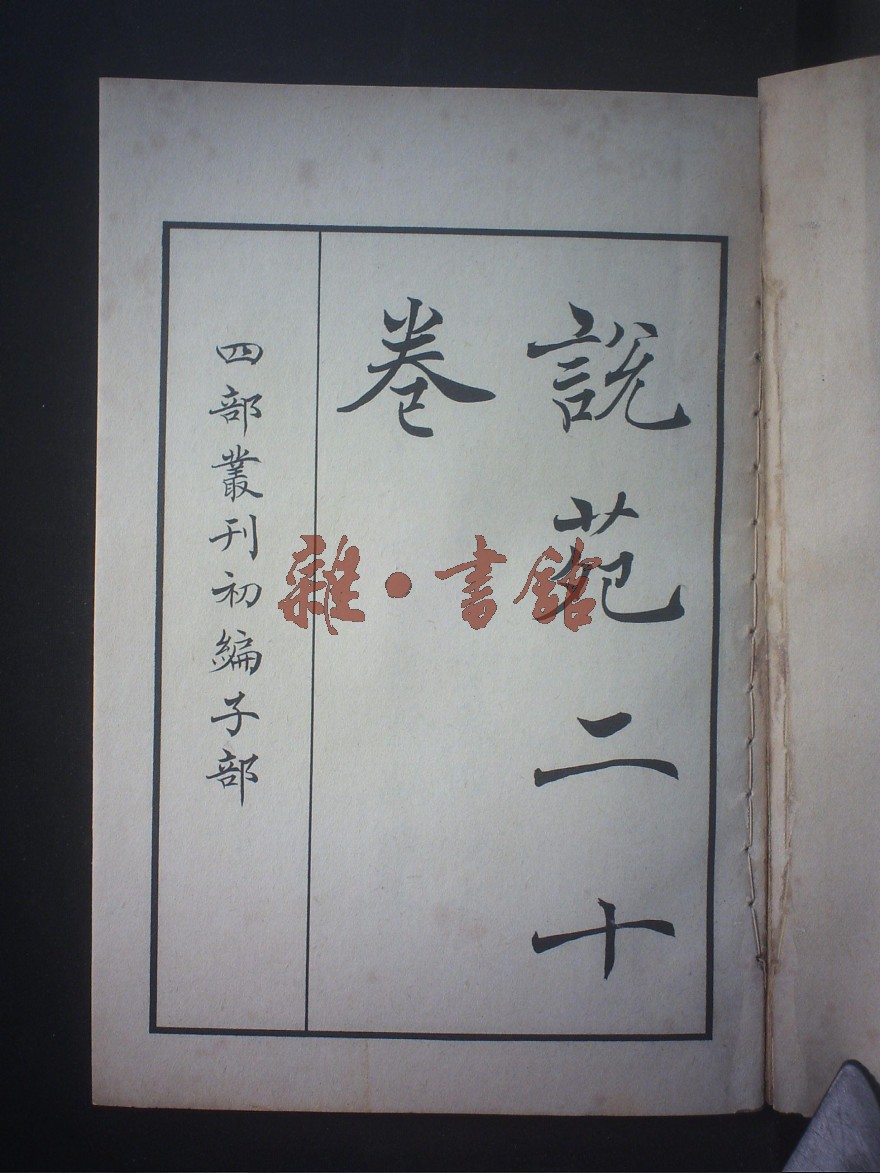 說苑二十
卷
四部叢刊初編子部
雜·書館